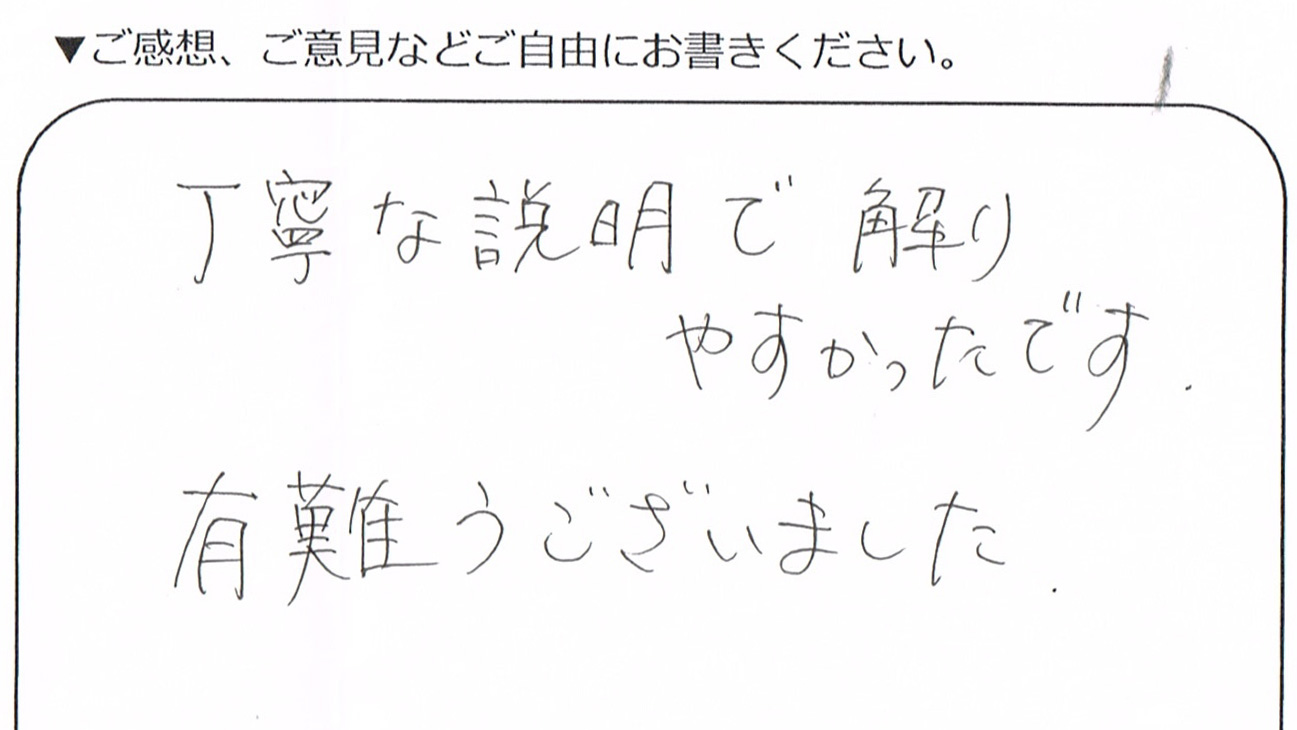 ▼ご感想、ご意見などご自由にお書きください。
丁寧な説明で解り
やすかったです.
有難うございました.